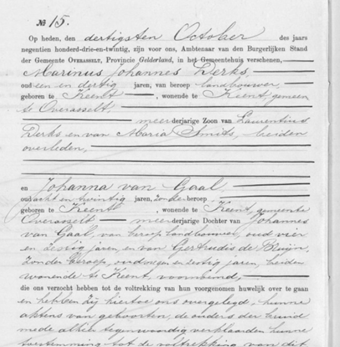 № 15.
Op heden, den dertigsten October des jaars
negentien honderd-drie-en-twintig, zijn voor ons, Ambtenaar van den Burgerlijken Stand
der Gemeente OVERASSELT, Provincie Gelderland, in het Gemeentehuis verschenen,
Marinus Johannes Derks,
oud een en dertig jaren, van beroep landbouwer,
geboren te Keent, wonende te Keent, gemeen
te Overasselt, meerderjarige Zoon van Laurentius
Derks en van Maria Smits, beiden
overleden,
en Johanna van Gaal
oud acht en twintig jaren, zonder beroep
geboren te Keent, wonende te Keent, gemeente
Overasselt meerderjarige Dochter van Johannes
van Gaal, van beroep landbouwer, oud vier
en zestig jaren, en van Gertrudis de Bruijn,
zonder beroep, en zestig jaren, beiden
wonende te Keent, voornoemd,
die ons verzocht hebben tot de voltrekking van hun voorgenomen huwelijk over te gaan
en hebben zij hiertoe ons overgelegd: hunne
akten van geboorten, de ouders der bruid
mede alhier tegenwoordig verklaarden hunne
toestemming tot de voltrekking van dit